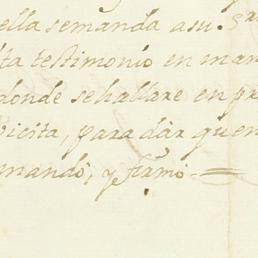 ella semanda a su. Sra
ta testimonio en man
donde se hallare en pr
vicita, para dàr quen
mandò, y firmò